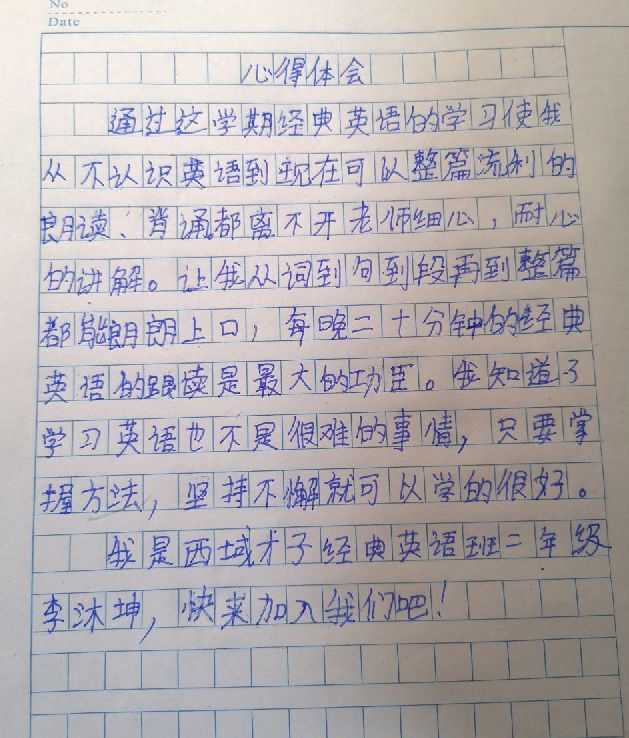 No
Date
心得体会
通过这学期经典英语的学习使我
从不认识英语到现在可以整篇流利的
朗读、背诵都离不开老师细心，耐心
的讲解。让我从词到句到段再到整篇
都能朗朗上口，每晚二十分钟的经典
英语的跟读是最大的功臣。我知道了
学习英语也不是很难的事情，只要掌
握方法，坚持不懈就可以学的很好。
我是西域才子经典英语班二年级
李沐坤，快来加入我们吧！